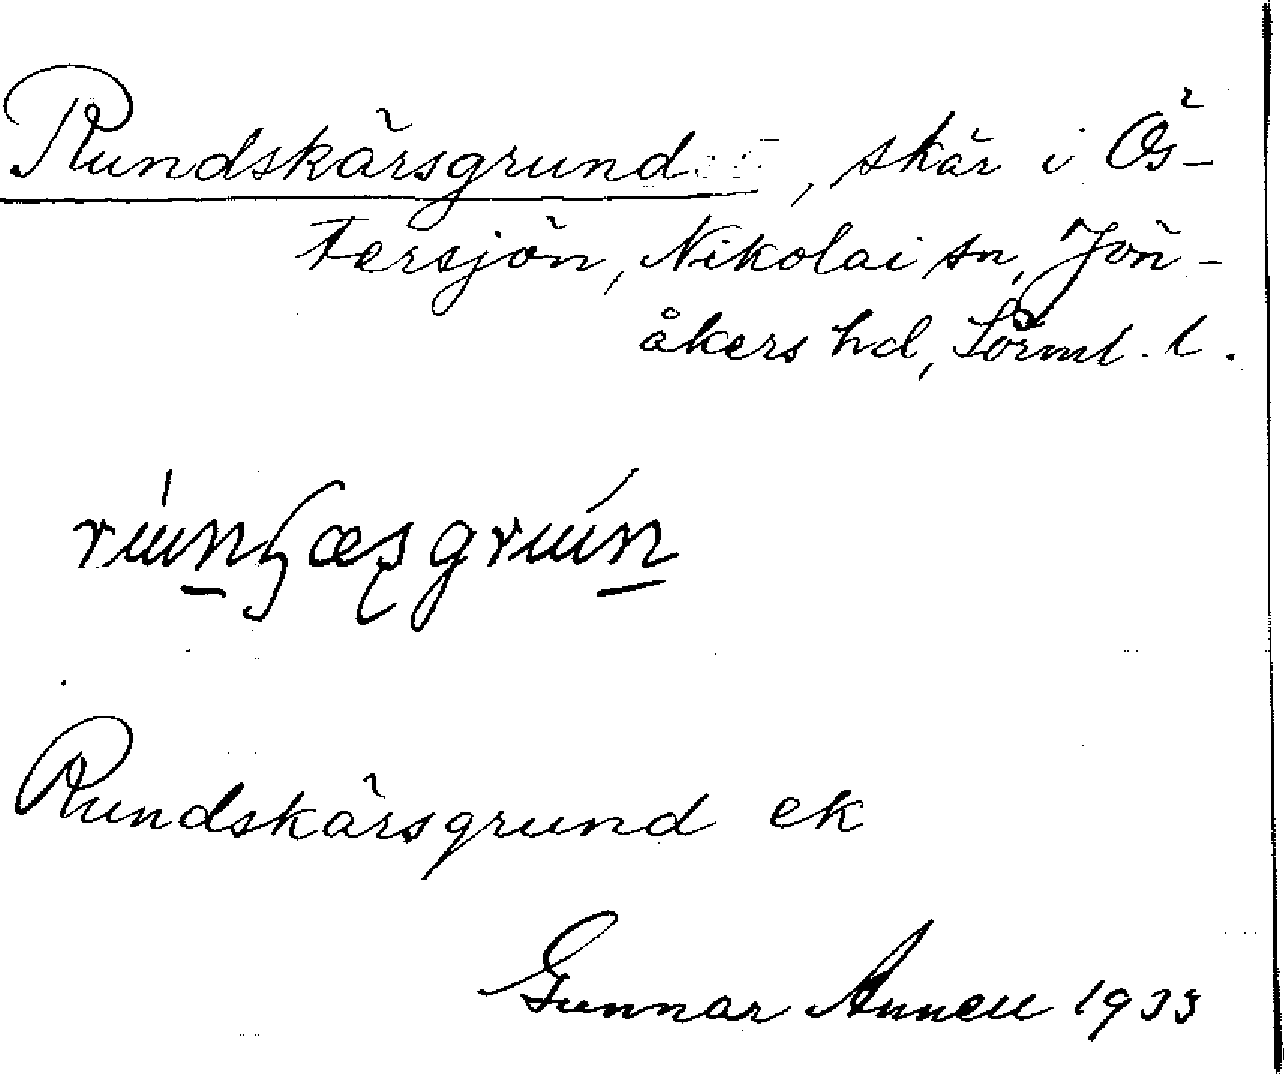 Rundskärsgrund, skär i Ös-
tersjön, Nikolai sn, Jön-
åkers hd, Sörml. l.
Rundskärsgrund ek
Gunnar Annell 1933